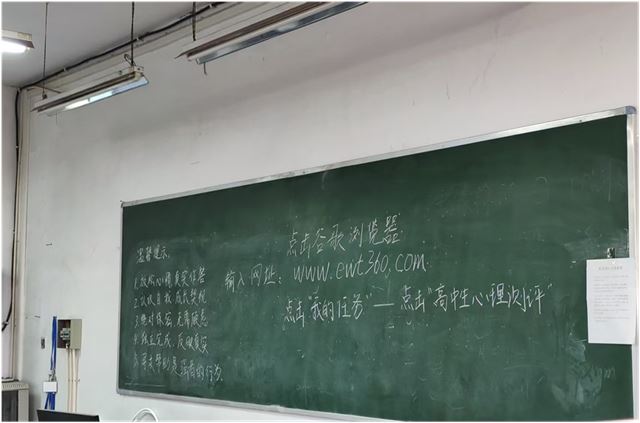 温馨提示:
1.放松心情 真实作答
2.认识自我 成长契机
3.绝对保密 无需顾忌
4.独立完成,反映真实
点击谷歌浏览器
输入网址:www.ewt360.com
点击“我的任务”—点击“高中生心理测评”